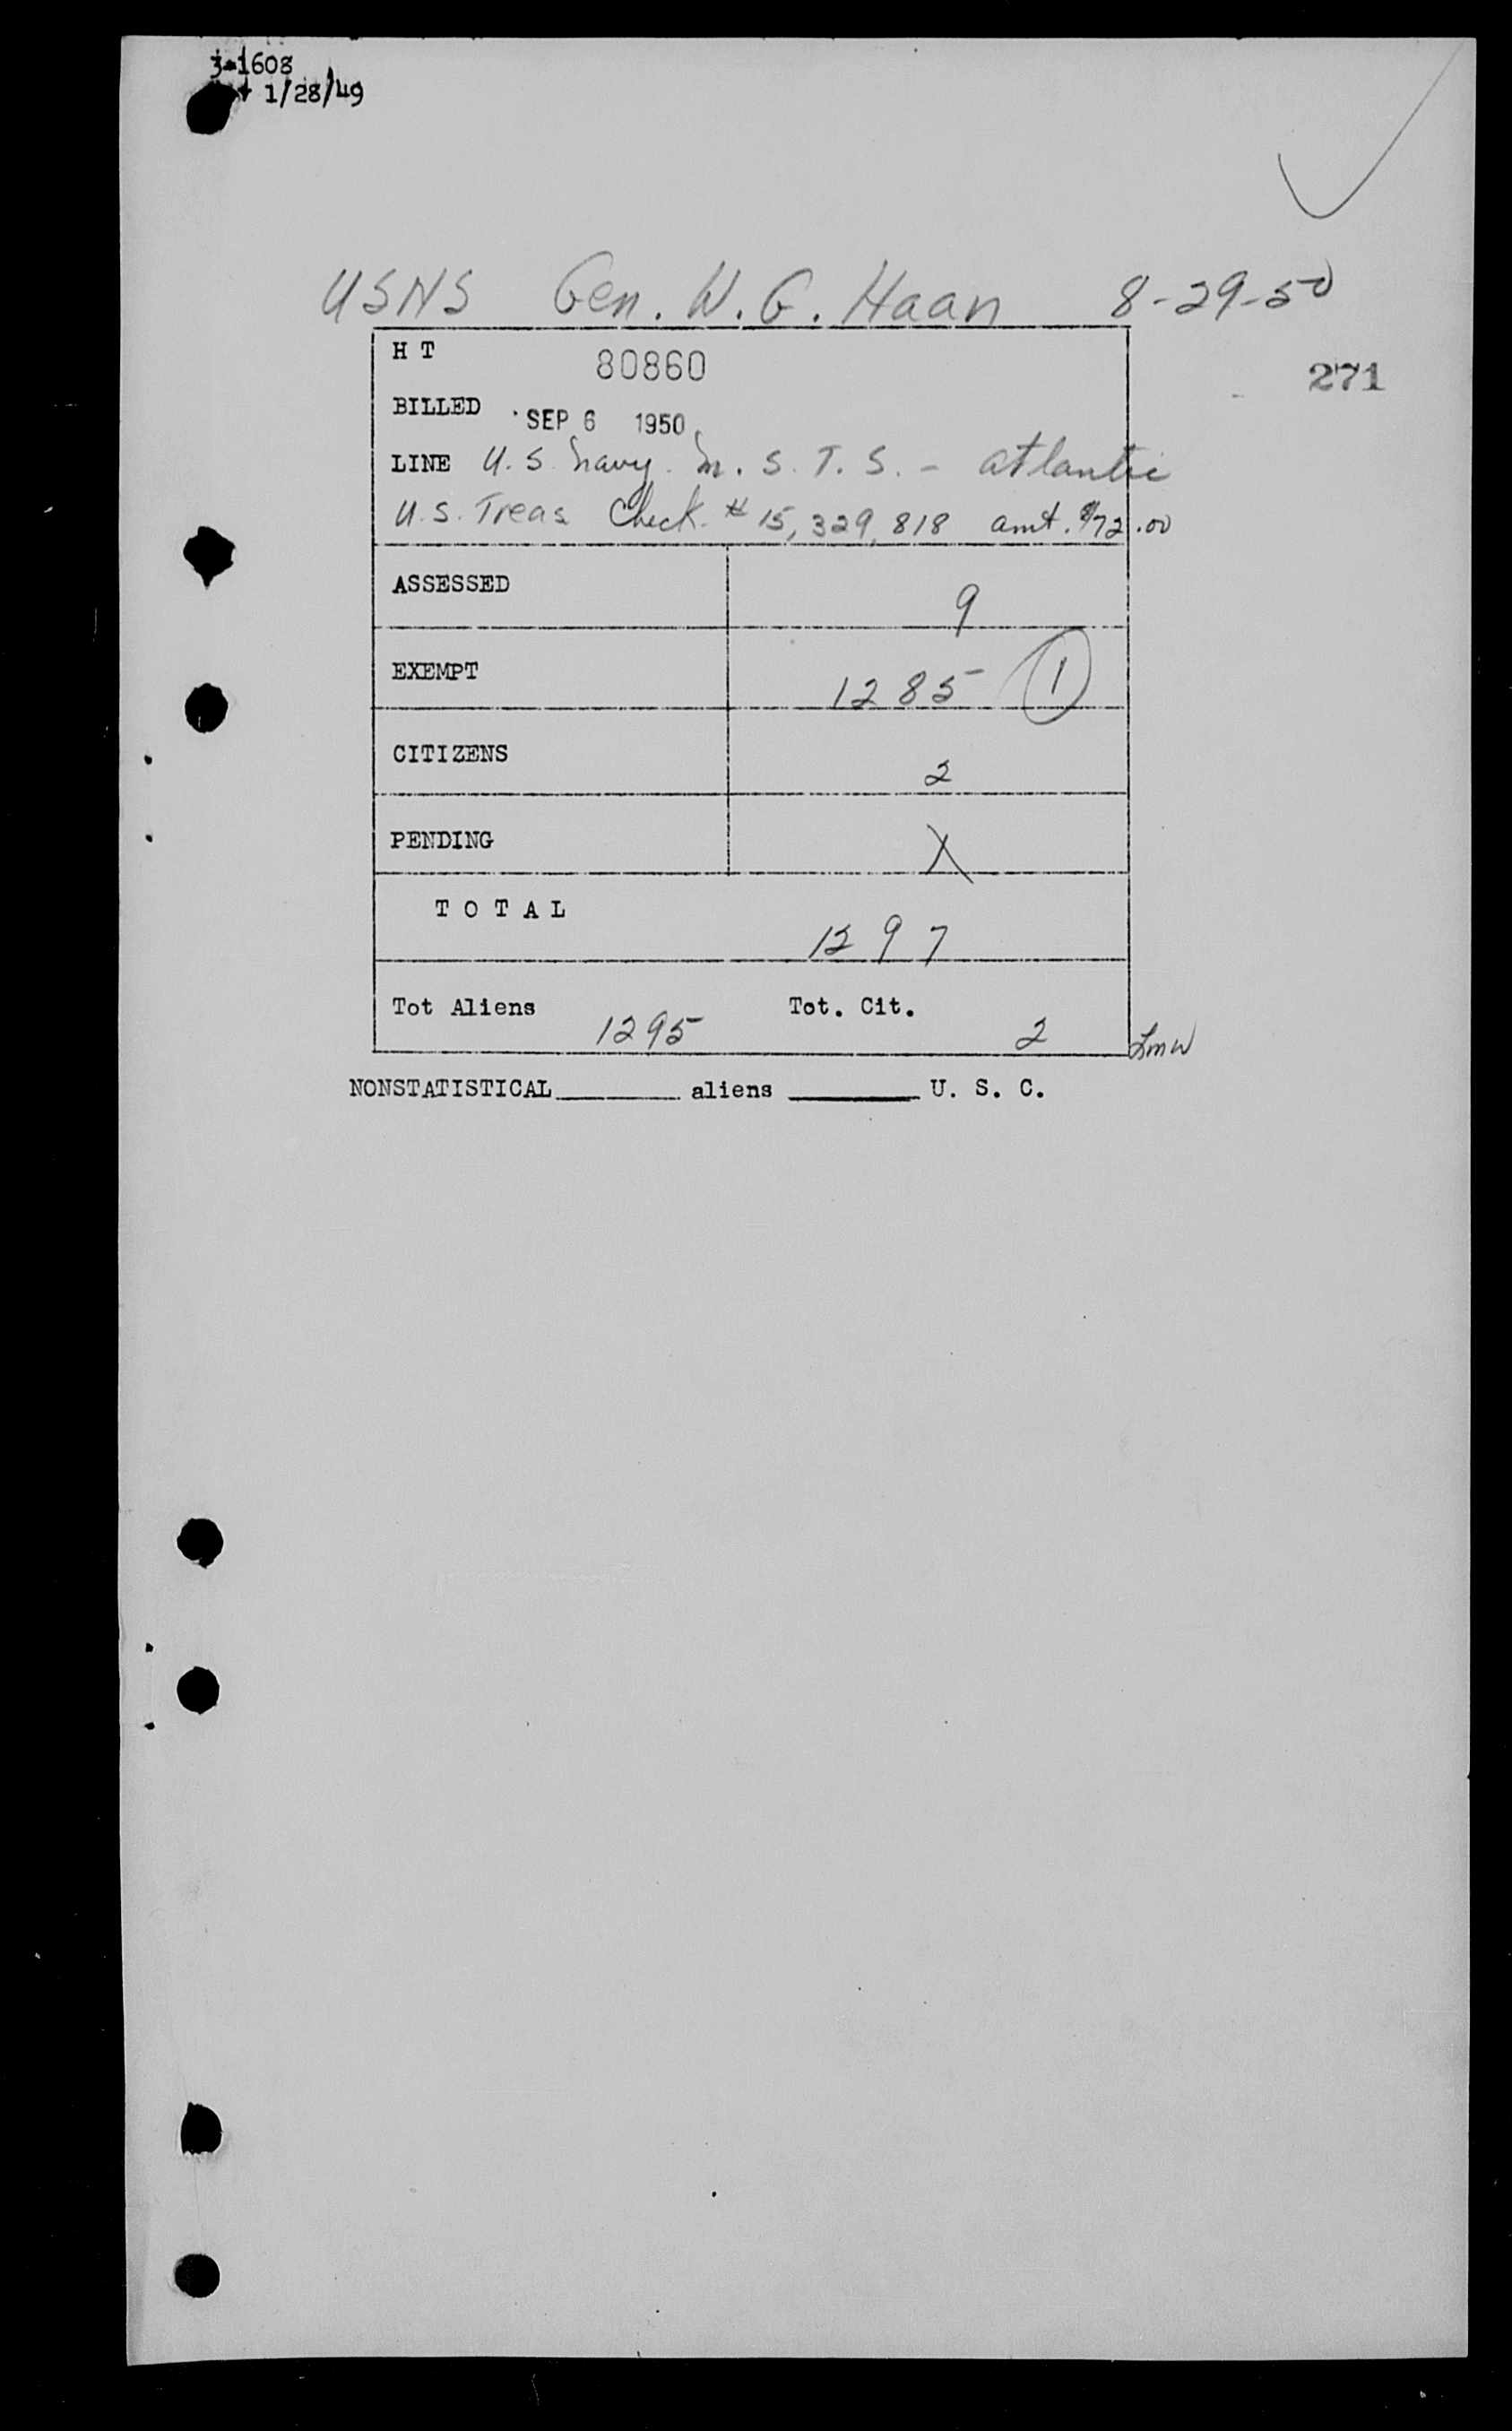 3-1608
1/28/49
USNS Gen. W. G. Haan 8-29-50
H T 80860
271
BILLED SEP 6 1950
LINE U.S. Navy. M. S. T. S. - Atlantic
U.S. Treas. Check # 15,329,818 amt. $72.00
ASSESSED 9
EXEMPT 1285 1
CITIZENS 2
PENDING X
T O T A L 1297
Tot Aliens 1295 Tot. Cit. 2
LMW
NONSTATISTICAL________ aliens ________ U. S. C.